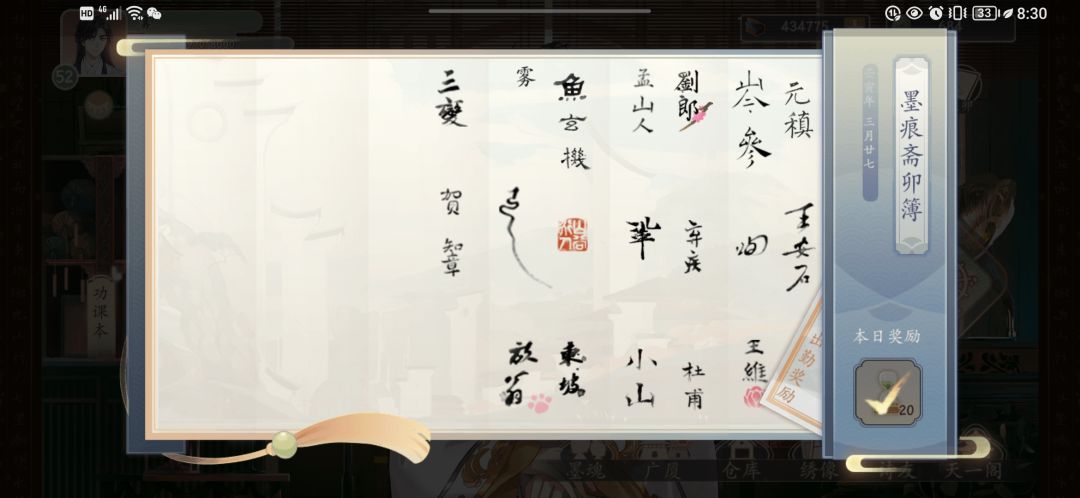 HD 4G
33 8:30
434775
52
墨痕斋卯簿
壬寅年 三月廿七
本日奖励
20
出勤奖励
元稹
王安石
岑參
王維
劉郎
弃疾
杜甫
孟山人
小山
魚玄機
東坡
雾
放翁
三變
賀知章
功课本
墨魂
广厦
仓库
绣像
诗友
天一阁